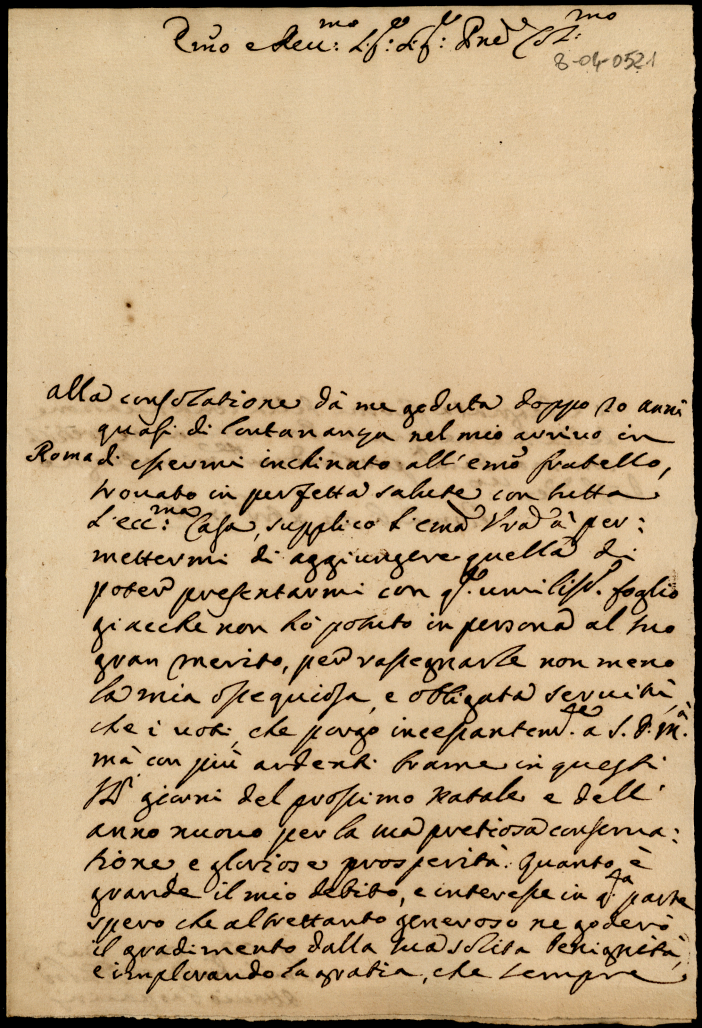 Emo e Reu:mo S:re S:re Pne Col:mo
8-04-0521
alla consolatione dà me goduta doppo 20 anni
quasi di lontananza nel mio arriuo in
Roma di essermi inchinato all'emo fratello,
trouato in perfetta salute con tutta
L'ecc:ma Casa, supplico L'ema Vra à per:
mettermi di aggiungere quella di
poter presentarmi con qto. umiliso. foglio
giacche non hò potuto in persona al suo
gran merito, per rassegnarle non meno
la mia ossequiosa, e obligata seruitù,
che i uoti, che porgo incessantemte. a S. D. Mà.
mà con più ardenti brame in questi
SS. giorni del prossimo Natale e dell'
anno nuouo per la sua pretiosa conserua:
tione, e gloriose prosperità. Quanto è
grande il mio debito, e interesse in qta parte
spero che altrettanto generoso ne goderò
il gradimento dalla sua solita benignità,
e implorando la gratia, che sempre